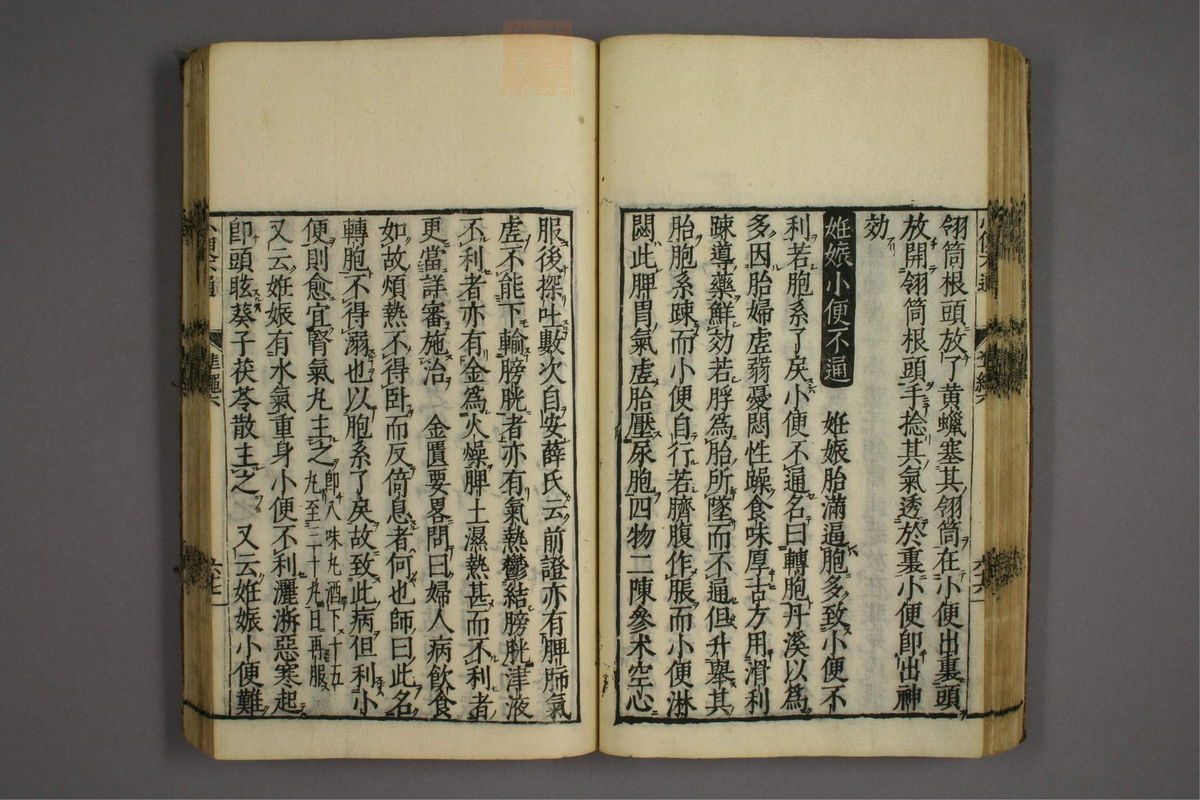 翎筒根頭放了黄蠟塞其翎筒在小便出裏頭
放開翎筒根頭手捻其氣透於裏小便即出神
効
姙娠小便不通 姙娠胎滿逼胞多致小便不
利若胞系了戾小便不通名曰轉胞丹溪以爲
多因胎婦虛弱憂悶性躁食味厚古方用滑利
踈導藥鮮効若脬爲胎所墜而不通但升舉其
胎胞系踈而小便自行若臍腹作脹而小便淋
閟此脾胃氣虛胎壓尿胞四物二陳參术空心
服後探吐數次自安薛氏云前證亦有脾肺氣
虛不能下輸膀胱者亦有氣熱鬱結膀胱津液
不利者亦有金爲火燥脾土濕熱甚而不利者
更當詳審施治 金匱要畧問曰婦人病飲食
如故煩熱不得卧而反倚息者何也師曰此名
轉胞不得溺也以胞系了戾故致此病但利小
便則愈宜腎氣丸主之 即八味丸酒下十五
丸至二十丸日再服
又云姙娠有水氣重身小便不利灑淅惡寒起
即頭眩葵子茯苓散主之 又云姙娠小便難
小便不通 準繩六 六七